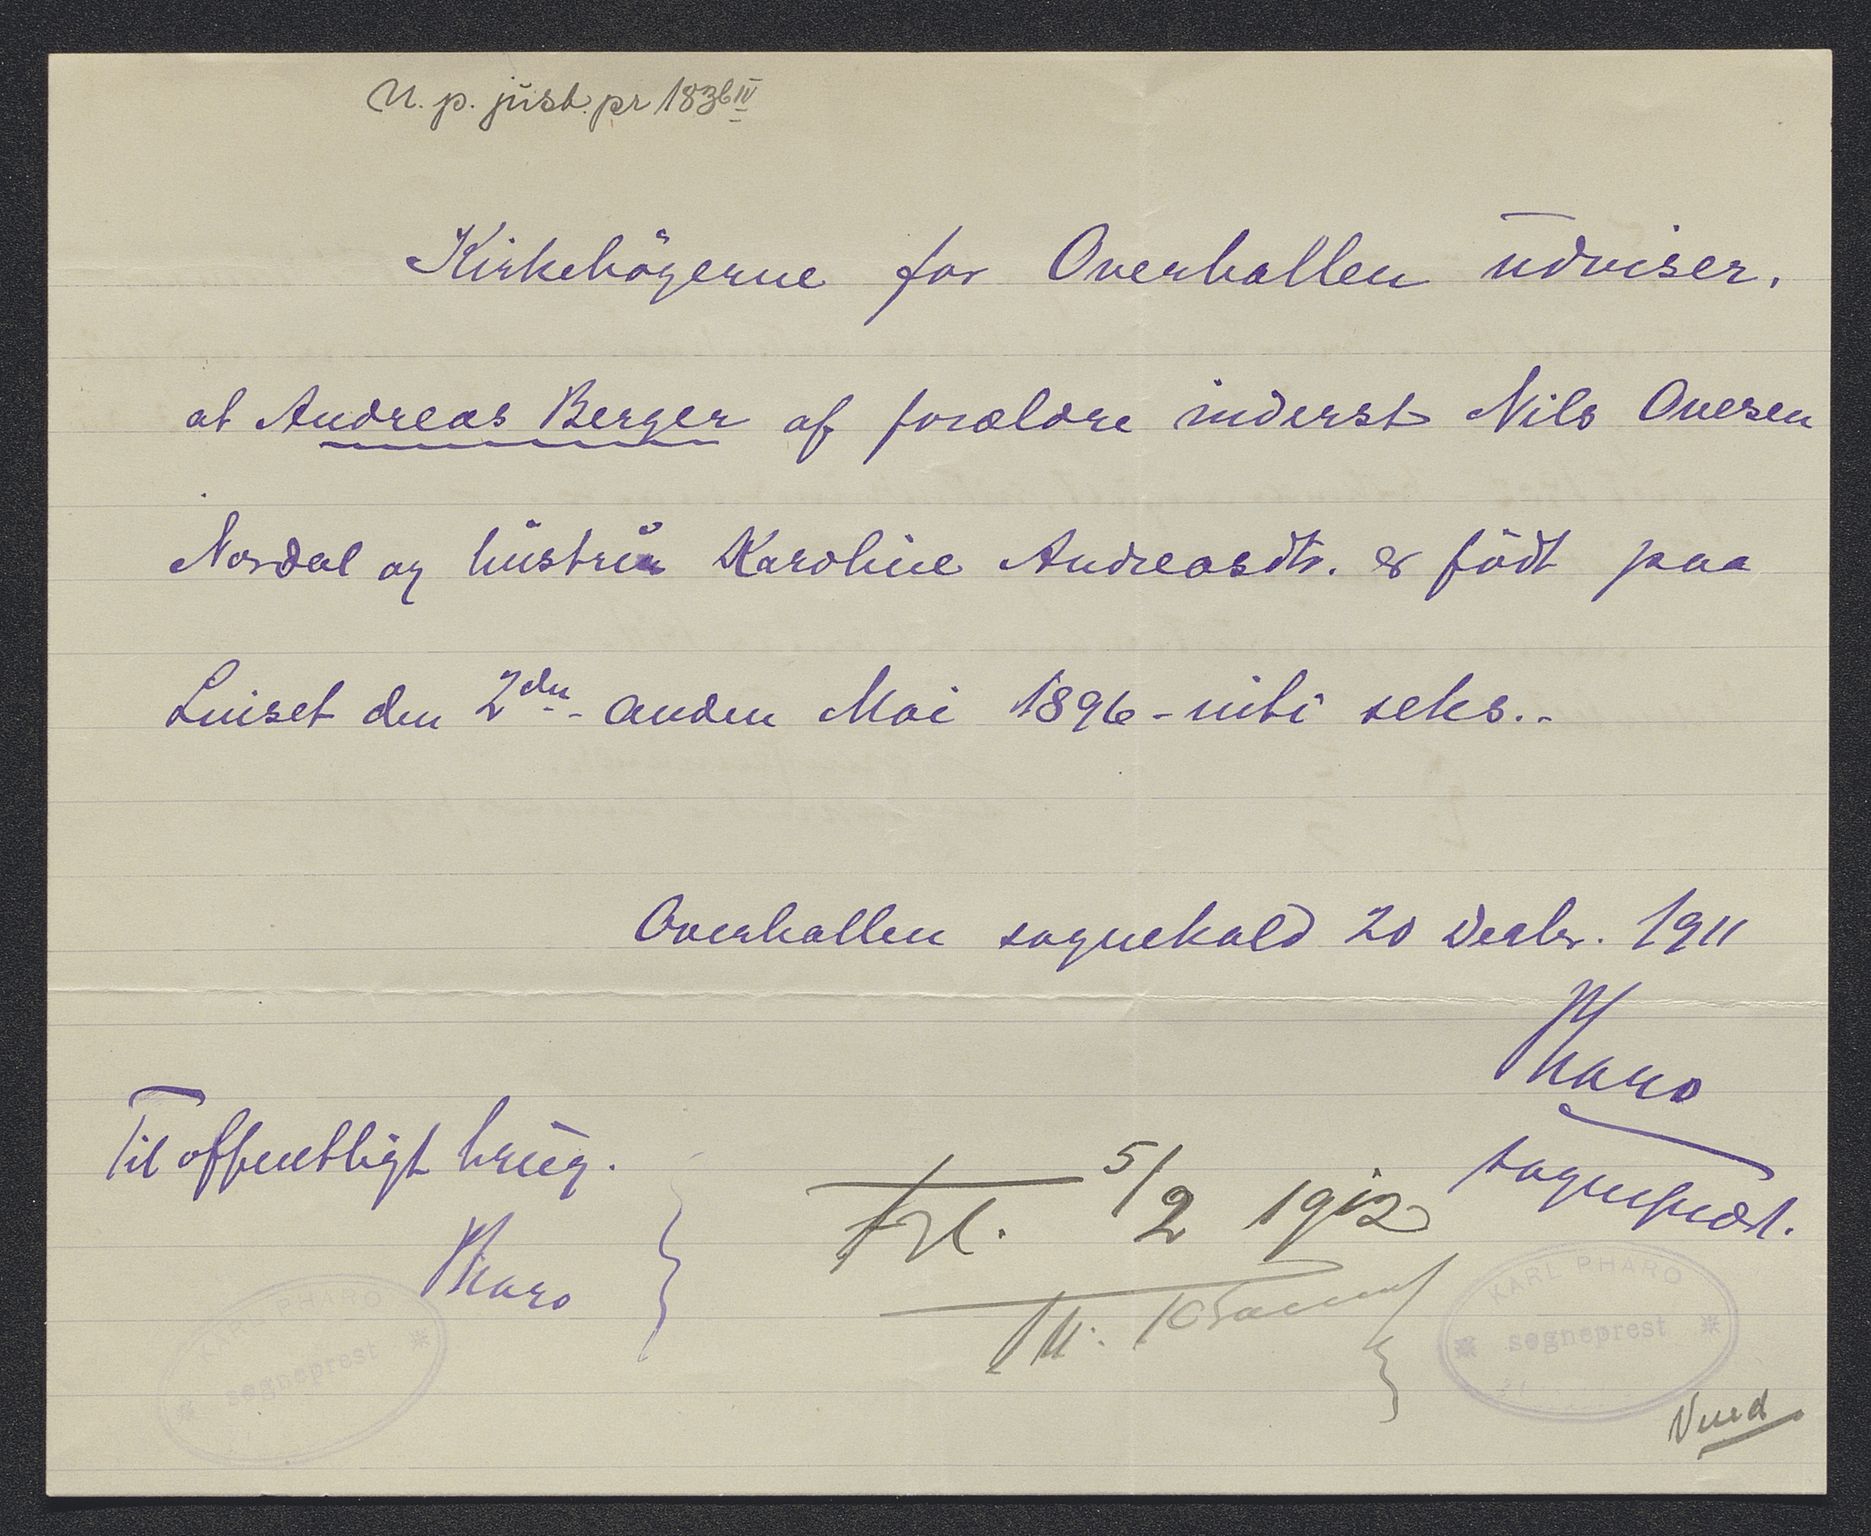 N. p. just. pr 1836 IV
Kirkebögerne for Overhallen udviser,
at Andreas Berger af forældre inderst Nils Ovesen
Nordal og hustru Karoline Andreasdtr. er födt paa
Luiset den 2den - anden Mai 1896 - niti seks..
Overhallen sognekald 20 Decbr. 1911
Pharo
sogneprest.
Til offentligt brug.
Pharo
5/2 1912
KARL PHARO
sogneprest
KARL PHARO
sogneprest
Vend